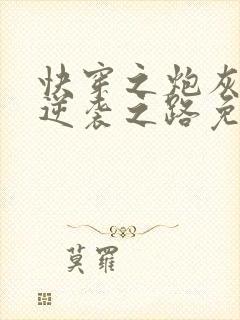 快穿之炮灰
逆袭之路免
莫罗